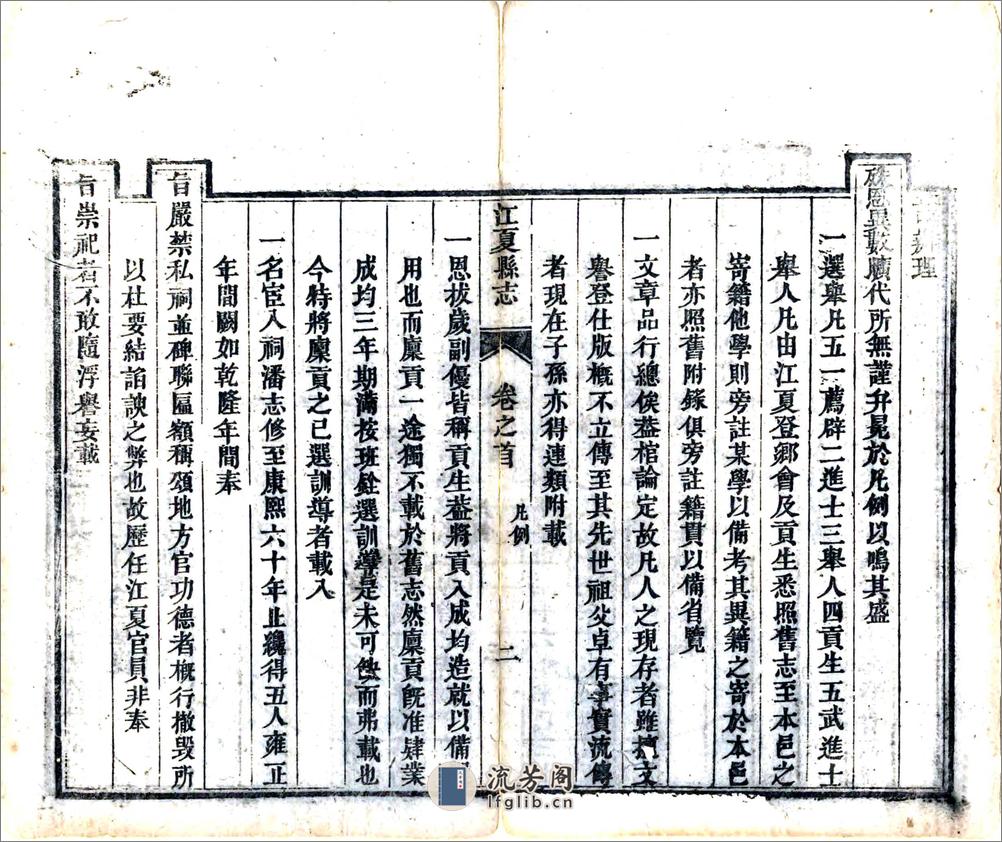 殊恩異數曠代所無謹弁晃於凡例以鳴其盛
一選舉凡五一薦辟二進士三舉人四貢生五武進士
舉人凡由江夏登鄉會及貢生悉照舊志至本邑之
寄籍他學則旁註某學以備考其異籍之寄於本邑
者亦照舊附錄俱旁註籍貫以備省覽
一文章品行總俟蓋棺論定故凡人之現存者雖擅文
譽登仕版概不立傳至其先世祖父卓有事實流傳
者現在子孫亦得連類附載
江夏縣志
卷之首
凡例
二
一恩拔歲副優皆稱貢生葢將貢入成均造就以備
用也而廩貢一途獨不載於舊志然廩貢既准肄業
成均三年期滿按班銓選訓導是未可缺而弗載也
今特將廩貢之已選訓導者載入
一名宦入祠潘志修至康熙六十年止纔得五人雍正
年間闕如乾隆年間奉
旨嚴禁私祠並碑聯匾額稱頌地方官功德者槪行撤毀所
以杜要結諂諛之弊也故歷任江夏官員非奉
旨崇祀者不敢隨浮譽妄載
流芳閣
lfglib.cn